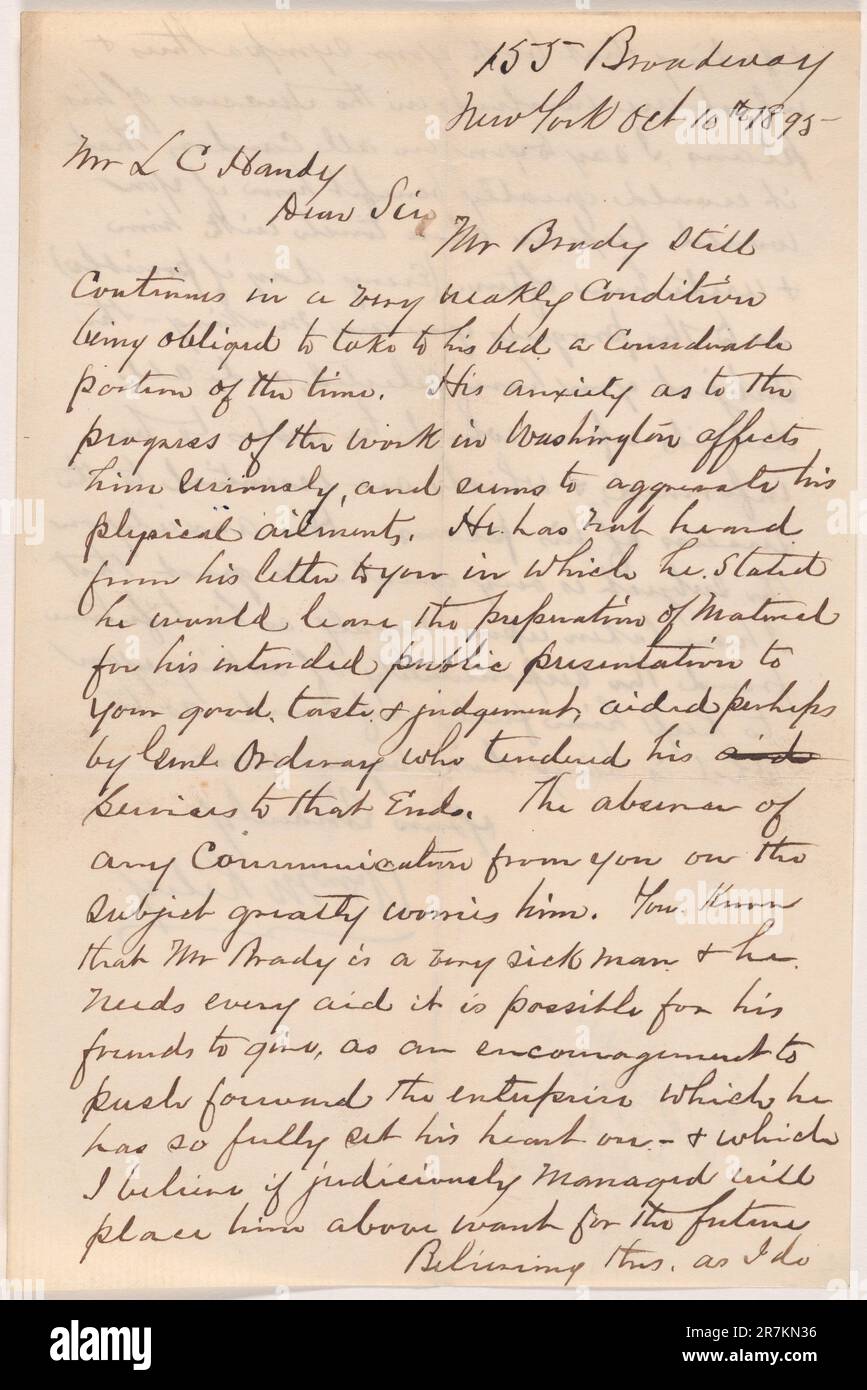 155 Broadway
New York Oct 10th 1895
Mr L C Handy
Dear Sir
Mr Brady still
continues in a very weakly condition
being obliged to take to his bed a considerable
portion of the time. His anxiety as to the
progress of the work in Washington affects
him seriously, and seems to aggravate his
physical ailments. He has not heard
from his letter to you in which he stated
he would leave the preparation of material
for his intended public presentation to
your good taste & judgement, aided perhaps
by Genl Ordway who tendered his aid
services to that end. The absence of
any communication from you on the
subject greatly worries him. You know
that Mr Brady is a very sick man & he
needs every aid it is possible for his
friends to give, as an encouragement to
push forward the enterprise which he
has so fully set his heart on - & which
I believe if judiciously managed will
place him above want for the future
Believing this, as I do
alamy
alamy
Image ID: 2R7KN36
www.alamy.com